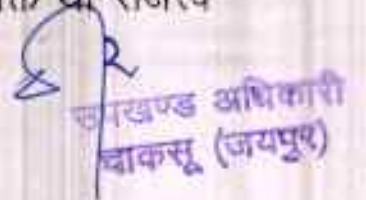 या राजस्व
उपखण्ड अधिकारी
चाकसू (जयपुर)